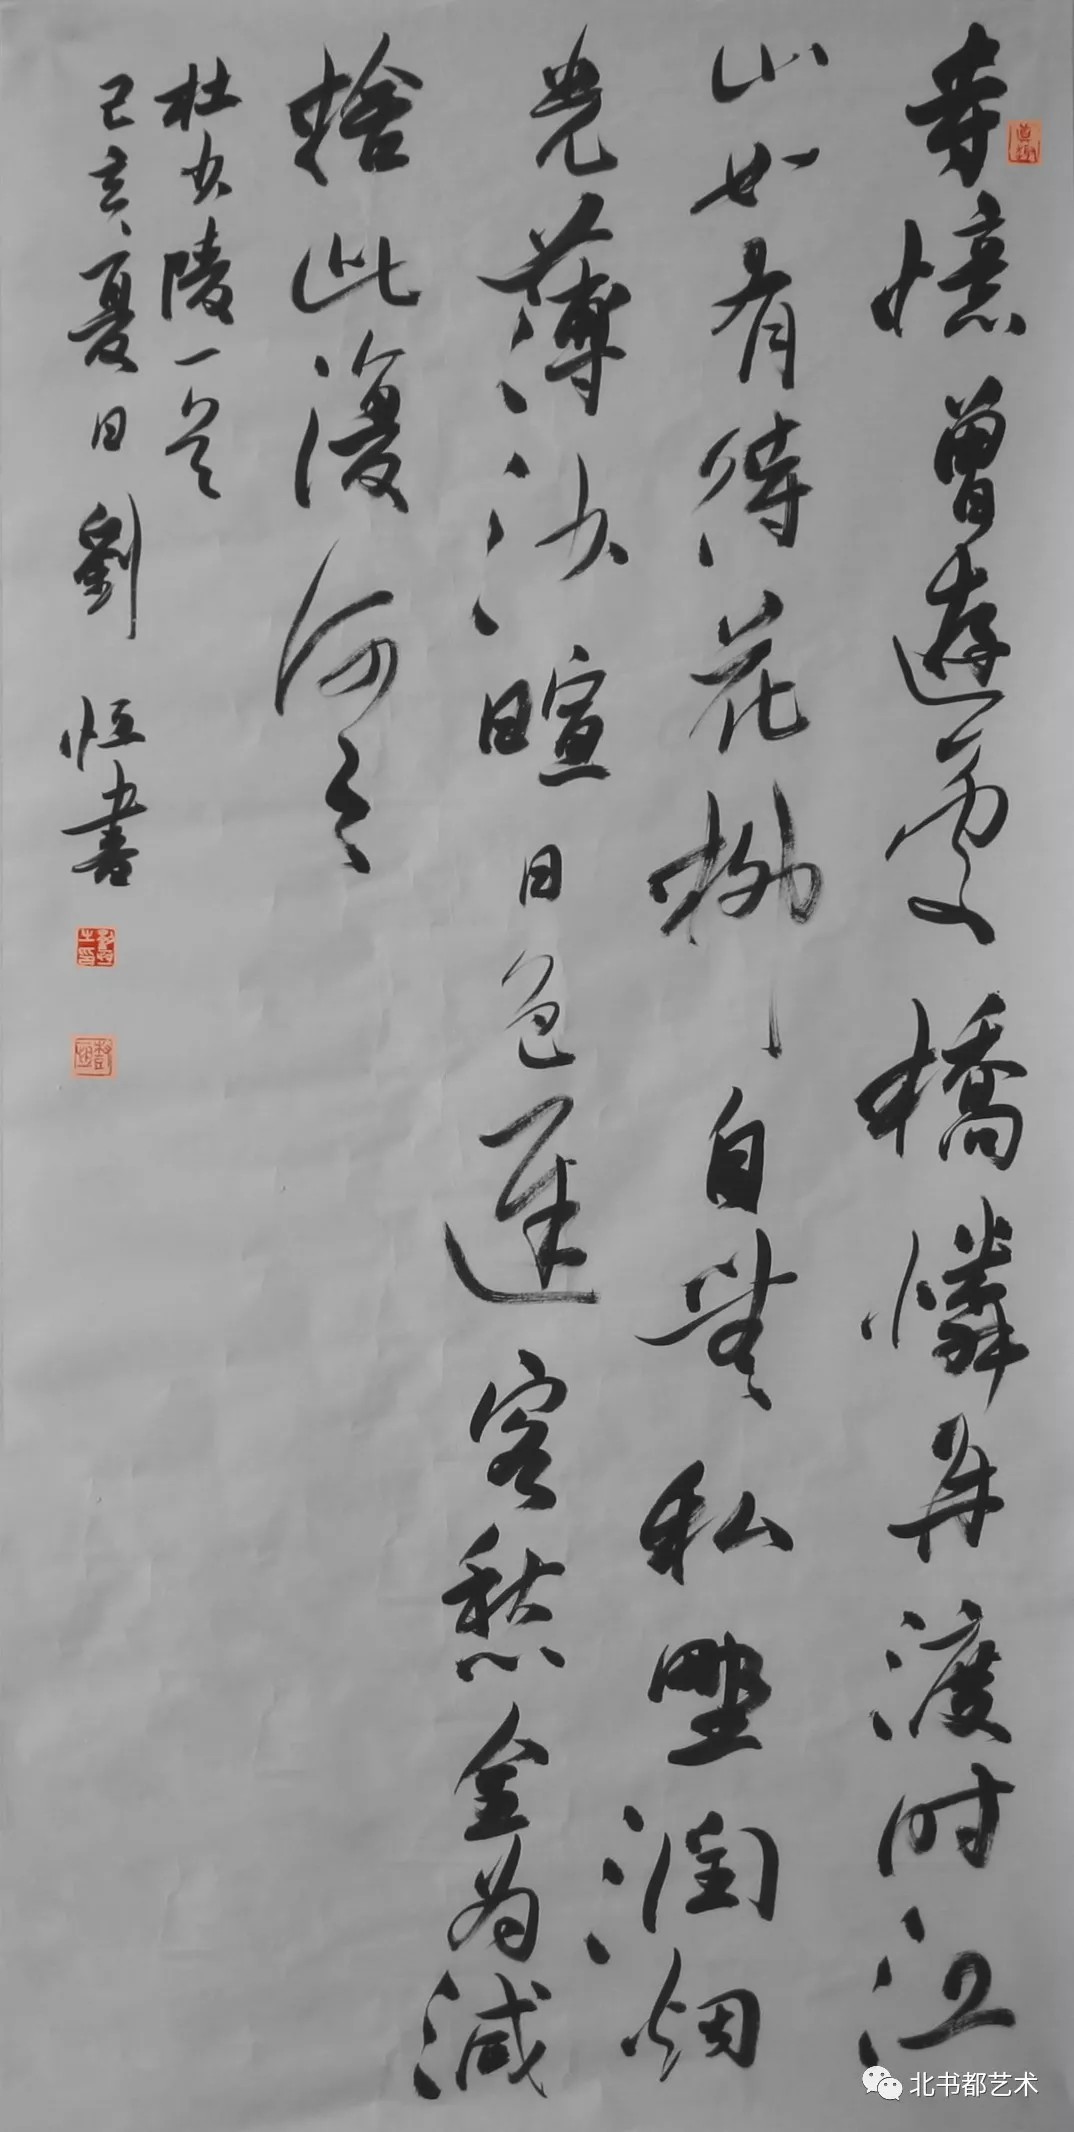 寺憶曾遊處橋憐再渡時江
山如有待花柳自無私野潤烟
光薄沙暄日色遲客愁全為減
捨此復何之
杜少陵一首
己亥夏日劉恒書
北书都艺术